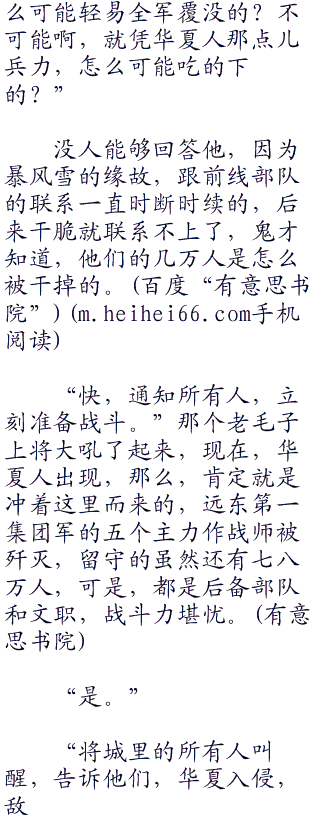 么可能轻易全军覆没的？不
可能啊，就凭华夏人那点儿
兵力，怎么可能吃的下
的？”
没人能够回答他，因为
暴风雪的缘故，跟前线部队
的联系一直时断时续的，后
来干脆就联系不上了，鬼才
知道，他们的几万人是怎么
被干掉的。(百度“有意思书
院”)(m.heihei66.com手机
阅读)
“快，通知所有人，立
刻准备战斗。”那个老毛子
上将大吼了起来，现在，华
夏人出现，那么，肯定就是
冲着这里而来的，远东第一
集团军的五个主力作战师被
歼灭，留守的虽然还有七八
万人，可是，都是后备部队
和文职，战斗力堪忧。(有意
思书院)
“是。”
“将城里的所有人叫
醒，告诉他们，华夏入侵，
敌